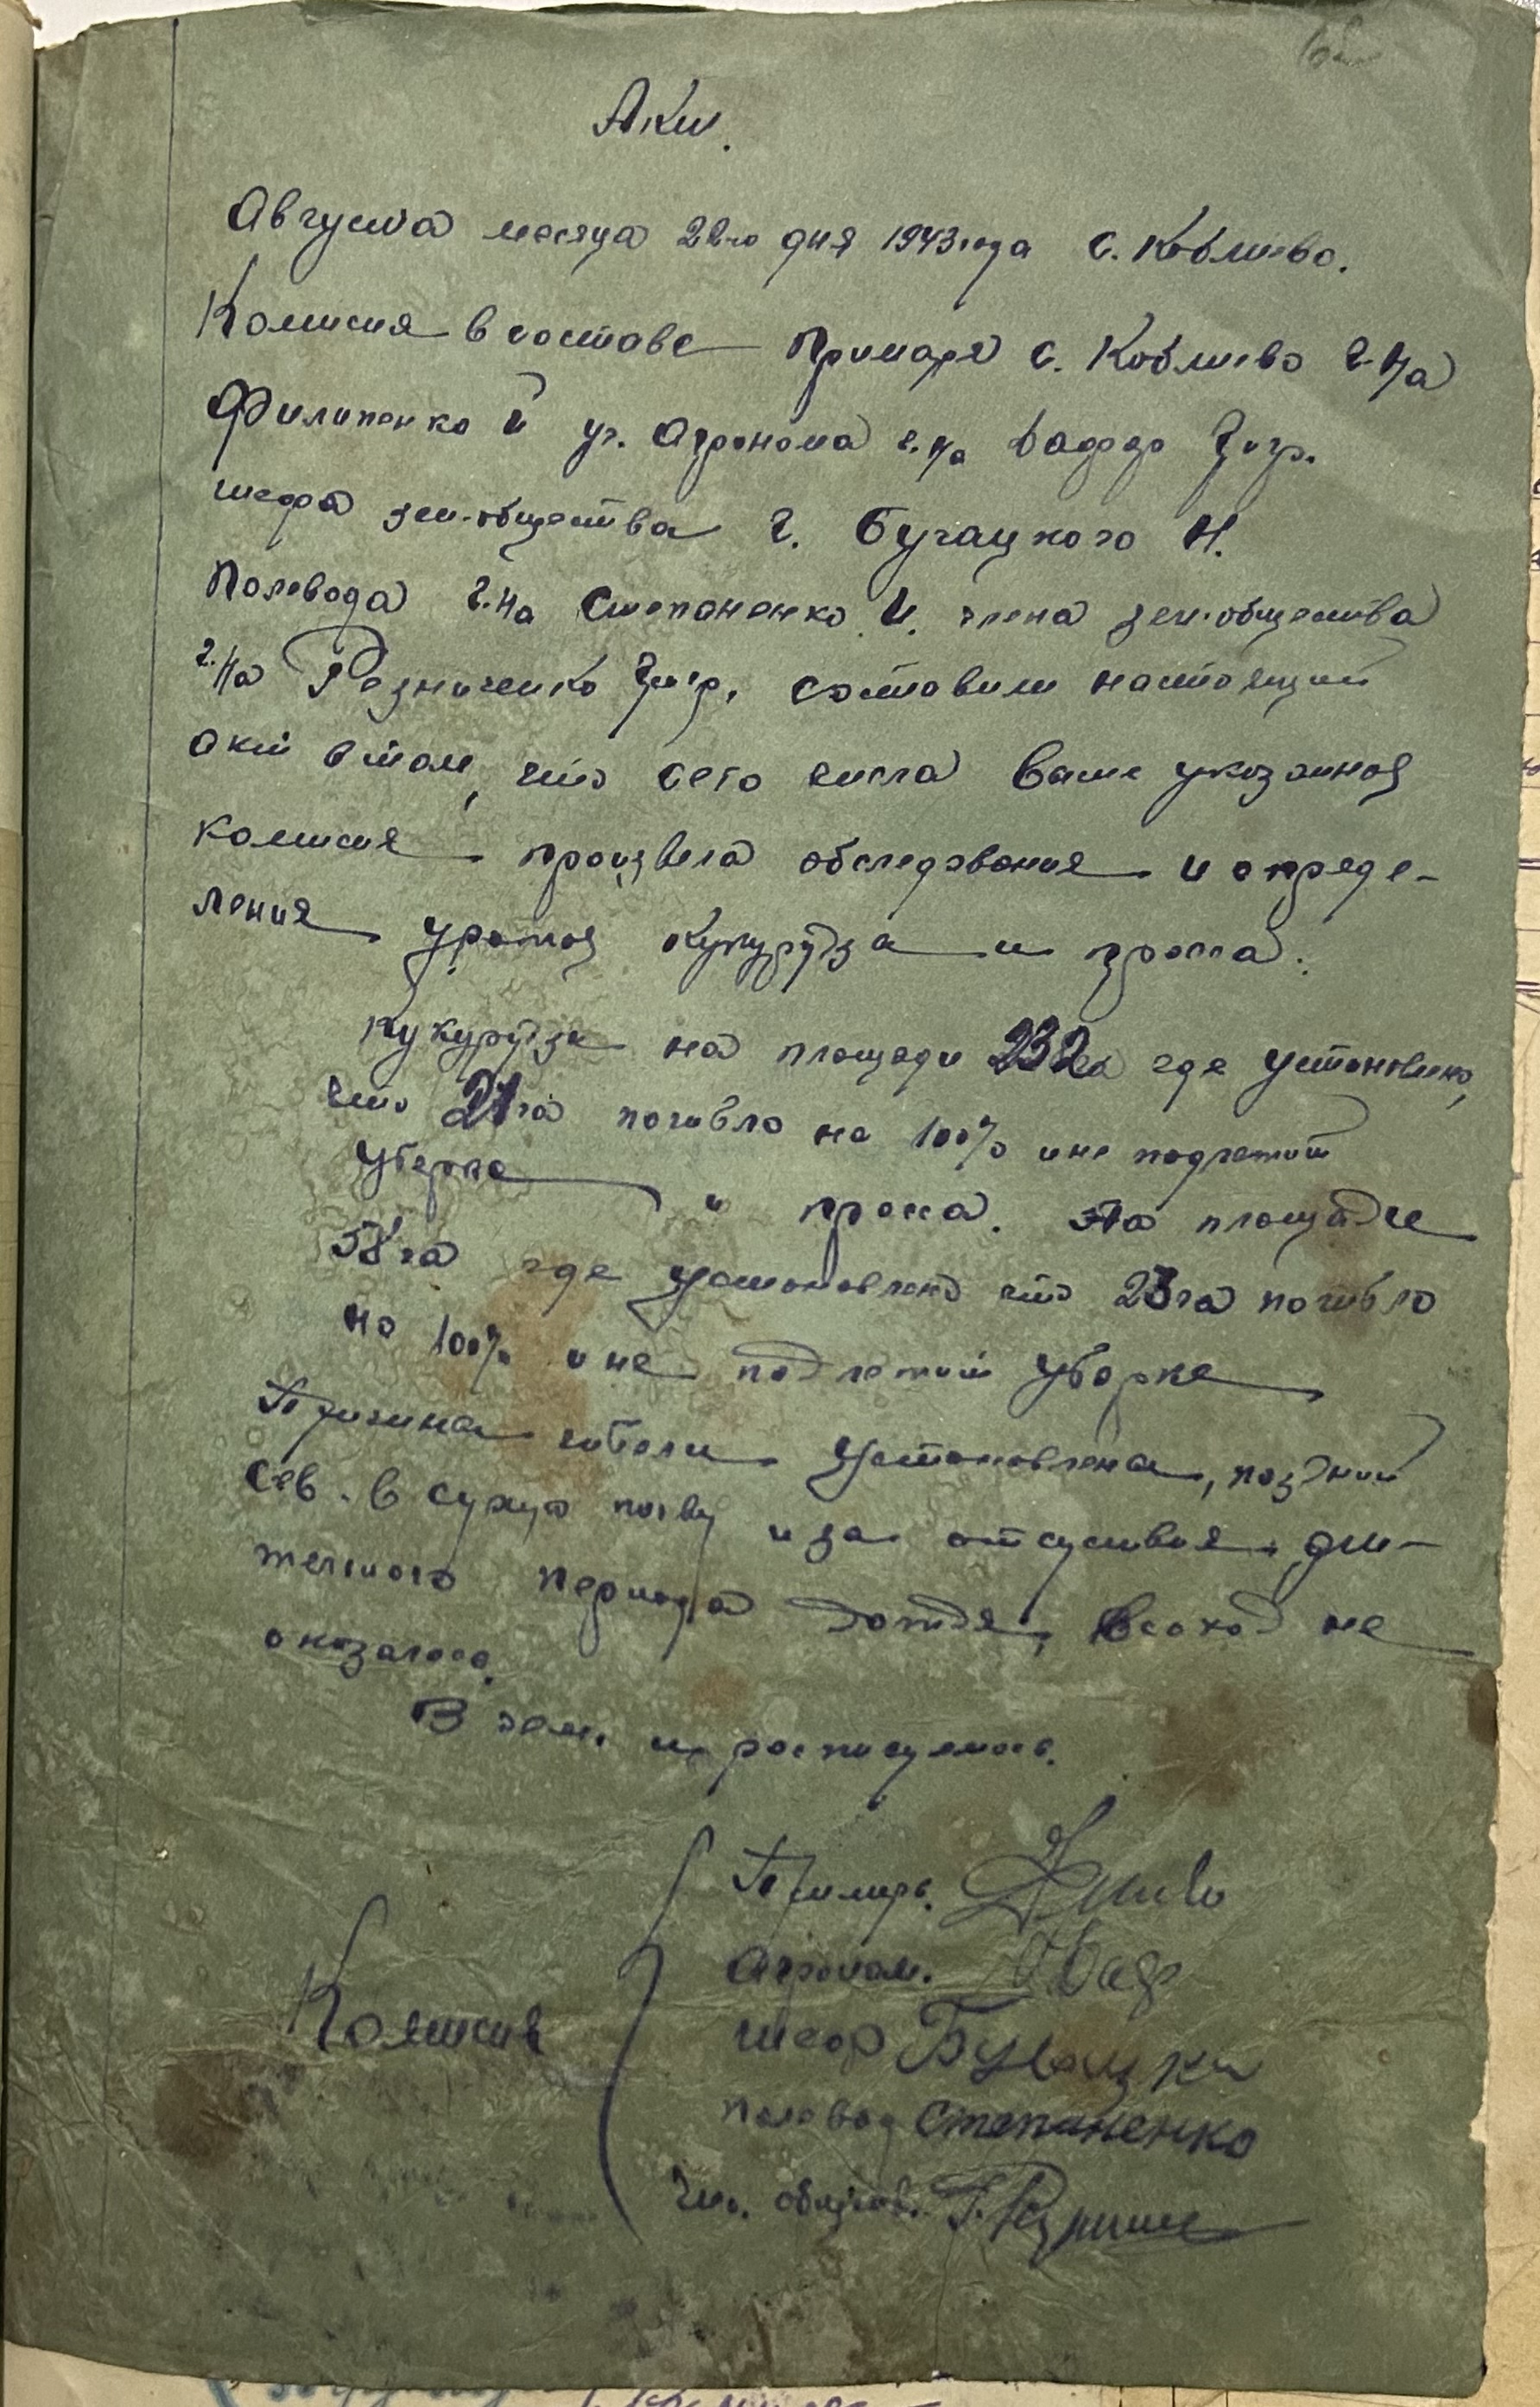 Акт.
Августа месяца 22го дня 1943 года с. Коблево.
Комисия в составе Примаря с. Коблево г-на
Филипенко И уч. Агронома г-на Даффэ Григ.
шефа зем-общества г. Бугацкого Н.
Полевода г-на Степаненко И. члена зем-общества
г-на Резниченко Григ. составили настоящий
акт втом, что сего числа выше указанная
комисия произвела обследования и опреде-
ления урожая кукуруза и проса.
Кукуруза на площади 232га где установлено,
что 21га погибло на 100% и не подлежит
уборке и проса. На площаде
58га где установлено что 23га погибло
на 100% и не подлежит уборке
Причина гибели установлена, поздний
сев. в сухую почву и за отсуствия дли-
тельного периода дождя, всход не
оказалось.
В чем и росписуемось.
Комисия
Примарь.
Агроном. Даф
шеф Бугацки
полевод Степаненко
Чл. общтв. Г. Резниче